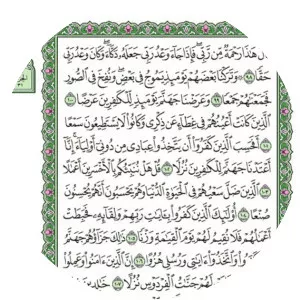 ل هَٰذَا رَحْمَةٌ مِّن رَّبِّي ۖ فَإِذَا جَاءَ وَعْدُ رَبِّي جَعَلَهُ دَكَّاءَ ۖ وَكَانَ وَعْدُ رَبِّي
حَقًّا ٩٨ وَتَرَكْنَا بَعْضَهُمْ يَوْمَئِذٍ يَمُوجُ فِي بَعْضٍ ۖ وَنُفِخَ فِي الصُّورِ
فَجَمَعْنَاهُمْ جَمْعًا ٩٩ وَعَرَضْنَا جَهَنَّمَ يَوْمَئِذٍ لِّلْكَافِرِينَ عَرْضًا ١٠٠
الَّذِينَ كَانَتْ أَعْيُنُهُمْ فِي غِطَاءٍ عَن ذِكْرِي وَكَانُوا لَا يَسْتَطِيعُونَ سَمْعًا
١٠١ أَفَحَسِبَ الَّذِينَ كَفَرُوا أَن يَتَّخِذُوا عِبَادِي مِن دُونِي أَوْلِيَاءَ ۚ إِنَّا
أَعْتَدْنَا جَهَنَّمَ لِلْكَافِرِينَ نُزُلًا ١٠٢ قُلْ هَلْ نُنَبِّئُكُم بِالْأَخْسَرِينَ أَعْمَالًا
١٠٣ الَّذِينَ ضَلَّ سَعْيُهُمْ فِي الْحَيَاةِ الدُّنْيَا وَهُمْ يَحْسَبُونَ أَنَّهُمْ يُحْسِنُونَ
صُنْعًا ١٠٤ أُولَٰئِكَ الَّذِينَ كَفَرُوا بِآيَاتِ رَبِّهِمْ وَلِقَائِهِ فَحَبِطَتْ
أَعْمَالُهُمْ فَلَا نُقِيمُ لَهُمْ يَوْمَ الْقِيَامَةِ وَزْنًا ١٠٥ ذَٰلِكَ جَزَاؤُهُمْ جَهَنَّمُ
وا وَاتَّخَذُوا آيَاتِي وَرُسُلِي هُزُوًا ١٠٦ إِنَّ الَّذِينَ آمَنُوا وَعَمِلُوا
لَهُمْ جَنَّاتُ الْفِرْدَوْسِ نُزُلًا ١٠٧ خَالِدِينَ